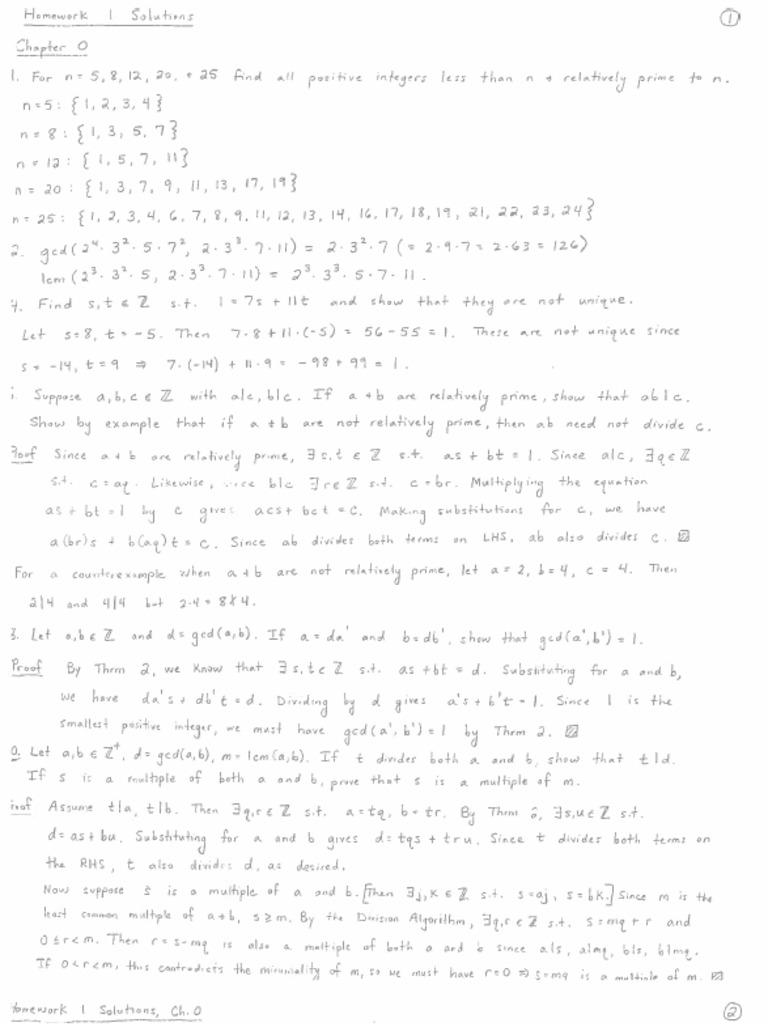 Homework 1 Solutions
①
Chapter 0
1. For n = 5, 8, 12, 20, + 25 find all positive integers less than n + relatively prime to n.
n = 5 : {1, 2, 3, 4}
n = 8 : {1, 3, 5, 7}
n = 12 : {1, 5, 7, 11}
n = 20 : {1, 3, 7, 9, 11, 13, 17, 19}
n = 25 : {1, 2, 3, 4, 6, 7, 8, 9, 11, 12, 13, 14, 16, 17, 18, 19, 21, 22, 23, 24}
2. gcd(2⁴·3²·5·7², 2·3³·7·11) = 2·3²·7 (= 2·9·7 = 2·63 = 126)
lcm(2³·3²·5, 2·3³·7·11) = 2³·3³·5·7·11.
4. Find s, t ∈ ℤ s.t. 1 = 7s + 11t and show that they are not unique.
Let s = 8, t = -5. Then 7·8 + 11·(-5) = 56 - 55 = 1. These are not unique since
s = -14, t = 9 ⇒ 7·(-14) + 11·9 = -98 + 99 = 1.
Suppose a, b, c ∈ ℤ with a|c, b|c. If a + b are relatively prime, show that ab|c.
Show by example that if a + b are not relatively prime, then ab need not divide c.
Proof Since a + b are relatively prime, ∃ s, t ∈ ℤ s.t. as + bt = 1. Since a|c, ∃ q ∈ ℤ
s.t. c = aq. Likewise, since b|c ∃ r ∈ ℤ s.t. c = br. Multiplying the equation
as + bt = 1 by c gives acs + bct = c. Making substitutions for c, we have
a(br)s + b(aq)t = c. Since ab divides both terms on LHS, ab also divides c. ▨
For a counterexample when a + b are not relatively prime, let a = 2, b = 4, c = 4. Then
2|4 and 4|4 but 2·4 = 8∤4.
3. Let a, b ∈ ℤ and d = gcd(a, b). If a = da' and b = db', show that gcd(a', b') = 1.
Proof By Thrm 2, we know that ∃ s, t ∈ ℤ s.t. as + bt = d. Substituting for a and b,
we have da's + db't = d. Dividing by d gives a's + b't = 1. Since 1 is the
smallest positive integer, we must have gcd(a', b') = 1 by Thrm 2. ▨
0. Let a, b ∈ ℤ⁺, d = gcd(a, b), m = lcm(a, b). If t divides both a and b, show that t|d.
If s is a multiple of both a and b, prove that s is a multiple of m.
Assume t|a, t|b. Then ∃ q, r ∈ ℤ s.t. a = tq, b = tr. By Thrm 2, ∃ s, u ∈ ℤ s.t.
d = as + bu. Substituting for a and b gives d = tqs + tru. Since t divides both terms on
the RHS, t also divides d, as desired.
Now suppose s is a multiple of a and b. [Then ∃ j, k ∈ ℤ s.t. s = aj, s = bk.] Since m is the
least common multple of a + b, s ≥ m. By the Division Algorithm, ∃ q, r ∈ ℤ s.t. s = mq + r and
0 ≤ r < m. Then r = s - mq is also a multiple of both a and b since a|s, a|mq, b|s, b|mq.
If 0 < r < m, this contradicts the minimality of m, so we must have r = 0 ⇒ s = mq is a multiple of m. ▨
Homework 1 Solutions, Ch. 0
②